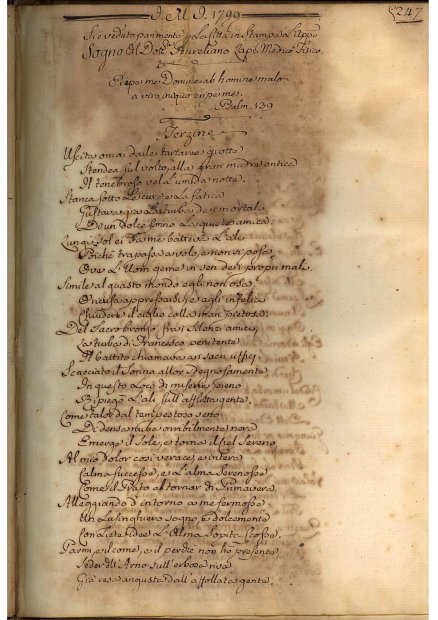 J. M. J. 1799
5247
Si è veduto parimente per la Città in Stampa l'appo
Sogno del Dott. Aureliano Lapi Medico Fisico
Eripe me Domine ab homine malo
a viro iniquo eripe me.
Psalm. 139
Terzine
Uscita omai dalle tartaree grotte
Stendea sul volto alla gran madre antica
Il tenebroso vel l'umida notte.
Stanca sotto le cure e la fatica
Gustava già la turba dei mortali
D'un dolce sonno la quiete amica.
Lungi sol ei da me batteva l'ali
Poichè trapassa a volo, e non si posa
Ove l'Uom geme in sen dei proprj mali
Simile al guasto mondo egli non osa
appressarsi agli infelici
Chiudere il ciglio colla man pietosa.
Del Sacro bronzo, fra i Silenzi amici
La turba di Francesco penitente
Il battito chiamava ai sacri uffici.
Scacciato il Sonno allor Sdegnosamente
In questo Loco di miserie pieno
Ripiegò l'ali sull'afflitta gente.
Come talor dal tempestoso seno
Di densa nube orribilmente nera
Emerge il Sole, e torna il ciel Sereno,
Al mio dolor così verace, e intera
Calma successe, e l'alma serenosse
Come il Prato al tornar di Primavera.
Aleggiando d'intorno a me fermosse
Un Lusinghiero sogno, e dolcemente
Con liete idee l'Alma sopita scosse.
Parmi, e il come, e il perchè non ho presente,
Seder d'Arno sull'erbosa riva
Già resa angusta dall'affollata gente.